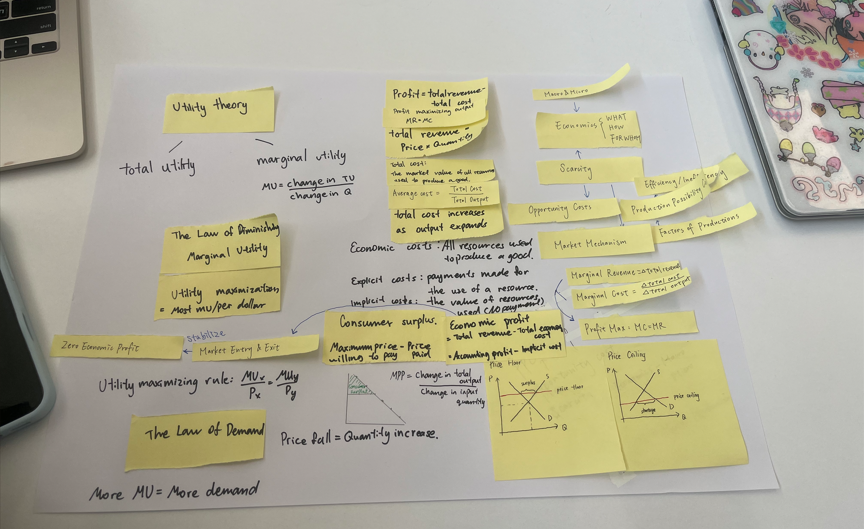 Utility theory
total utility
marginal utility
MU = change in TU
change in Q
The Law of Diminishing
Marginal Utility
Utility maximization
= Most MU/per dollar
stabilize
Zero Economic Profit
Market Entry & Exit
Utility maximizing rule: MUx = MUy
Px Py
The Law of Demand
More MU = More demand
Profit = total revenue -
total cost.
Profit maximizing output
MR = MC
total revenue =
Price × Quantity
Total cost:
The market value of all resources
used to produce a good.
Average cost = Total Cost
Total Output
total cost increases
as output expands
Economic costs: All resources used
to produce a good.
Explicit costs: payments made for
the use of a resource.
Implicit costs: the value of resources
used (no payment)
Consumer surplus.
Maximum price - Price
willing to pay paid
Economic profit
= Total revenue - Total economic
cost
= Accounting profit - Implicit cost
MPP = Change in total
output
Change in input
quantity
consumer
surplus
Price fall = Quantity increase.
Macro & Micro
Economics { WHAT
HOW
FOR WHOM
Scarsity
Efficiency/Inefficiency
Opportunity Costs
Production Possibility
Factors of Productions
Market Mechanism
Marginal Revenue = Δ total revenue
Marginal Cost = Δ total cost
Δ total output
Profit Max: MC = MR
Price Floor
P
surplus
S
price floor
D
Q
Price Ceiling
P
S
price ceiling
shortage
D
Q